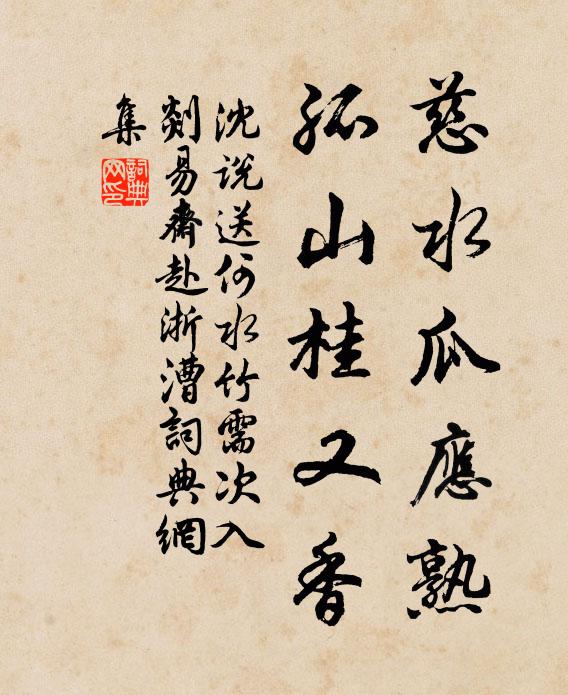 慈水瓜應熟
孤山桂又香
沈說送何水竹需次入
剡易齋赴浙漕詞典網
集
詞典網印